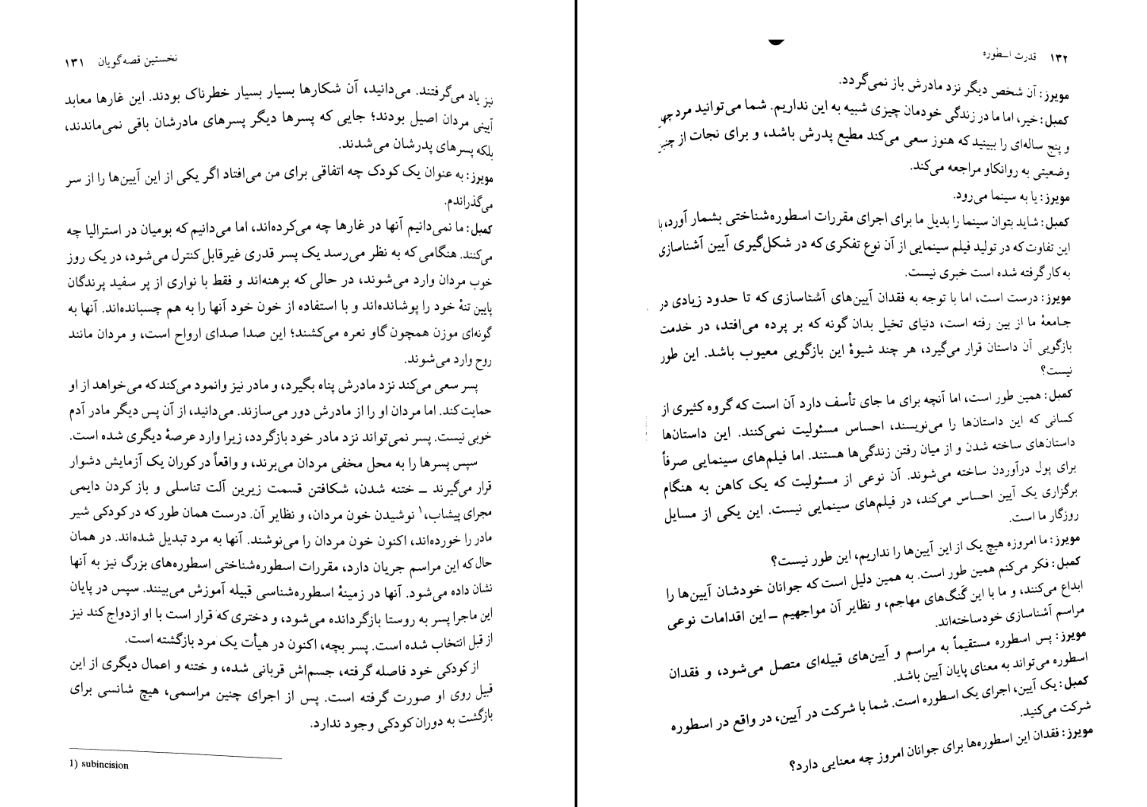 نخستین قصه‌گویان ۱۳۱
نیز یاد می‌گرفتند. می‌دانید، آن شکارها بسیار بسیار خطرناک بودند. این غارها معابد
آیینی مردان اصیل بودند؛ جایی که پسرها دیگر پسرهای مادرشان باقی نمی‌ماندند،
بلکه پسرهای پدرشان می‌شدند.
مویرز: به عنوان یک کودک چه اتفاقی برای من می‌افتاد اگر یکی از این آیین‌ها را از سر
می‌گذراندم.
کمبل: ما نمی‌دانیم آنها در غارها چه می‌کرده‌اند، اما می‌دانیم که بومیان در استرالیا چه
می‌کنند. هنگامی که به نظر می‌رسد یک پسر قدری غیرقابل کنترل می‌شود، در یک روز
خوب مردان وارد می‌شوند، در حالی که برهنه‌اند و فقط با نواری از پر سفید پرندگان
پایین تنهٔ خود را پوشانده‌اند و با استفاده از خون خود آنها را به هم چسبانده‌اند. آنها به
گونه‌ای موزن همچون گاو نعره می‌کشند؛ این صدا صدای ارواح است، و مردان مانند
روح وارد می‌شوند.
پسر سعی می‌کند نزد مادرش پناه بگیرد، و مادر نیز وانمود می‌کند که می‌خواهد از او
حمایت کند. اما مردان او را از مادرش دور می‌سازند. می‌دانید، از آن پس دیگر مادر آدم
خوبی نیست. پسر نمی‌تواند نزد مادر خود بازگردد، زیرا وارد عرصهٔ دیگری شده است.
سپس پسرها را به محل مخفی مردان می‌برند، و واقعاً در کوران یک آزمایش دشوار
قرار می‌گیرند ــ ختنه شدن، شکافتن قسمت زیرین آلت تناسلی و باز کردن دایمی
مجرای پیشاب،۱ نوشیدن خون مردان، و نظایر آن. درست همان طور که در کودکی شیر
مادر را خورده‌اند، اکنون خون مردان را می‌نوشند. آنها به مرد تبدیل شده‌اند. در همان
حال که این مراسم جریان دارد، مقررات اسطوره‌شناختی اسطوره‌های بزرگ نیز به آنها
نشان داده می‌شود. آنها در زمینهٔ اسطوره‌شناسی قبیله آموزش می‌بینند. سپس در پایان
این ماجرا پسر به روستا بازگردانده می‌شود، و دختری که قرار است با او ازدواج کند نیز
از قبل انتخاب شده است. پسر بچه، اکنون در هیأت یک مرد بازگشته است.
از کودکی خود فاصله گرفته، جسم‌اش قربانی شده، و ختنه و اعمال دیگری از این
قبیل روی او صورت گرفته است. پس از اجرای چنین مراسمی، هیچ شانسی برای
بازگشت به دوران کودکی وجود ندارد.
1) subincision
۱۳۲ قدرت اسطوره
مویرز: آن شخص دیگر نزد مادرش باز نمی‌گردد.
کمبل: خیر، اما ما در زندگی خودمان چیزی شبیه به این نداریم. شما می‌توانید مرد
و پنج ساله‌ای را ببینید که هنوز سعی می‌کند مطیع پدرش باشد، و برای نجات از
وضعیتی به روانکاو مراجعه می‌کند.
مویرز: یا به سینما می‌رود.
کمبل: شاید بتوان سینما را بدیل ما برای اجرای مقررات اسطوره‌شناختی بشمار آورد،
این تفاوت که در تولید فیلم سینمایی از آن نوع تفکری که در شکل‌گیری آیین آشناسازی
به کار گرفته شده است خبری نیست.
مویرز: درست است، اما با توجه به فقدان آیین‌های آشناسازی که تا حدود زیادی در
جامعهٔ ما از بین رفته است، دنیای تخیل بدان گونه که بر پرده می‌افتد، در خدمت
بازگویی آن داستان قرار می‌گیرد، هر چند شیوهٔ این بازگویی معیوب باشد. این طور
نیست؟
کمبل: همین طور است، اما آنچه برای ما جای تأسف دارد آن است که گروه کثیری از
کسانی که این داستان‌ها را می‌نویسند، احساس مسئولیت نمی‌کنند. این داستان‌ها
داستان‌های ساخته شدن و از میان رفتن زندگی‌ها هستند. اما فیلم‌های سینمایی صرفاً
برای پول درآوردن ساخته می‌شوند. آن نوعی از مسئولیت که یک کاهن به هنگام
برگزاری یک آیین احساس می‌کند، در فیلم‌های سینمایی نیست. این یکی از مسایل
روزگار ما است.
مویرز: ما امروزه هیچ یک از این آیین‌ها را نداریم، این طور نیست؟
کمبل: فکر می‌کنم همین طور است. به همین دلیل است که جوانان خودشان آیین‌ها را
ابداع می‌کنند، و ما با این گنگ‌های مهاجم، و نظایر آن مواجهیم ــ این اقدامات نوعی
مراسم آشناسازی خودساخته‌اند.
مویرز: پس اسطوره مستقیماً به مراسم و آیین‌های قبیله‌ای متصل می‌شود، و فقدان
اسطوره می‌تواند به معنای پایان آیین باشد.
کمبل: یک آیین، اجرای یک اسطوره است. شما با شرکت در آیین، در واقع در اسطوره
شرکت می‌کنید.
مویرز: فقدان این اسطوره‌ها برای جوانان امروز چه معنایی دارد؟